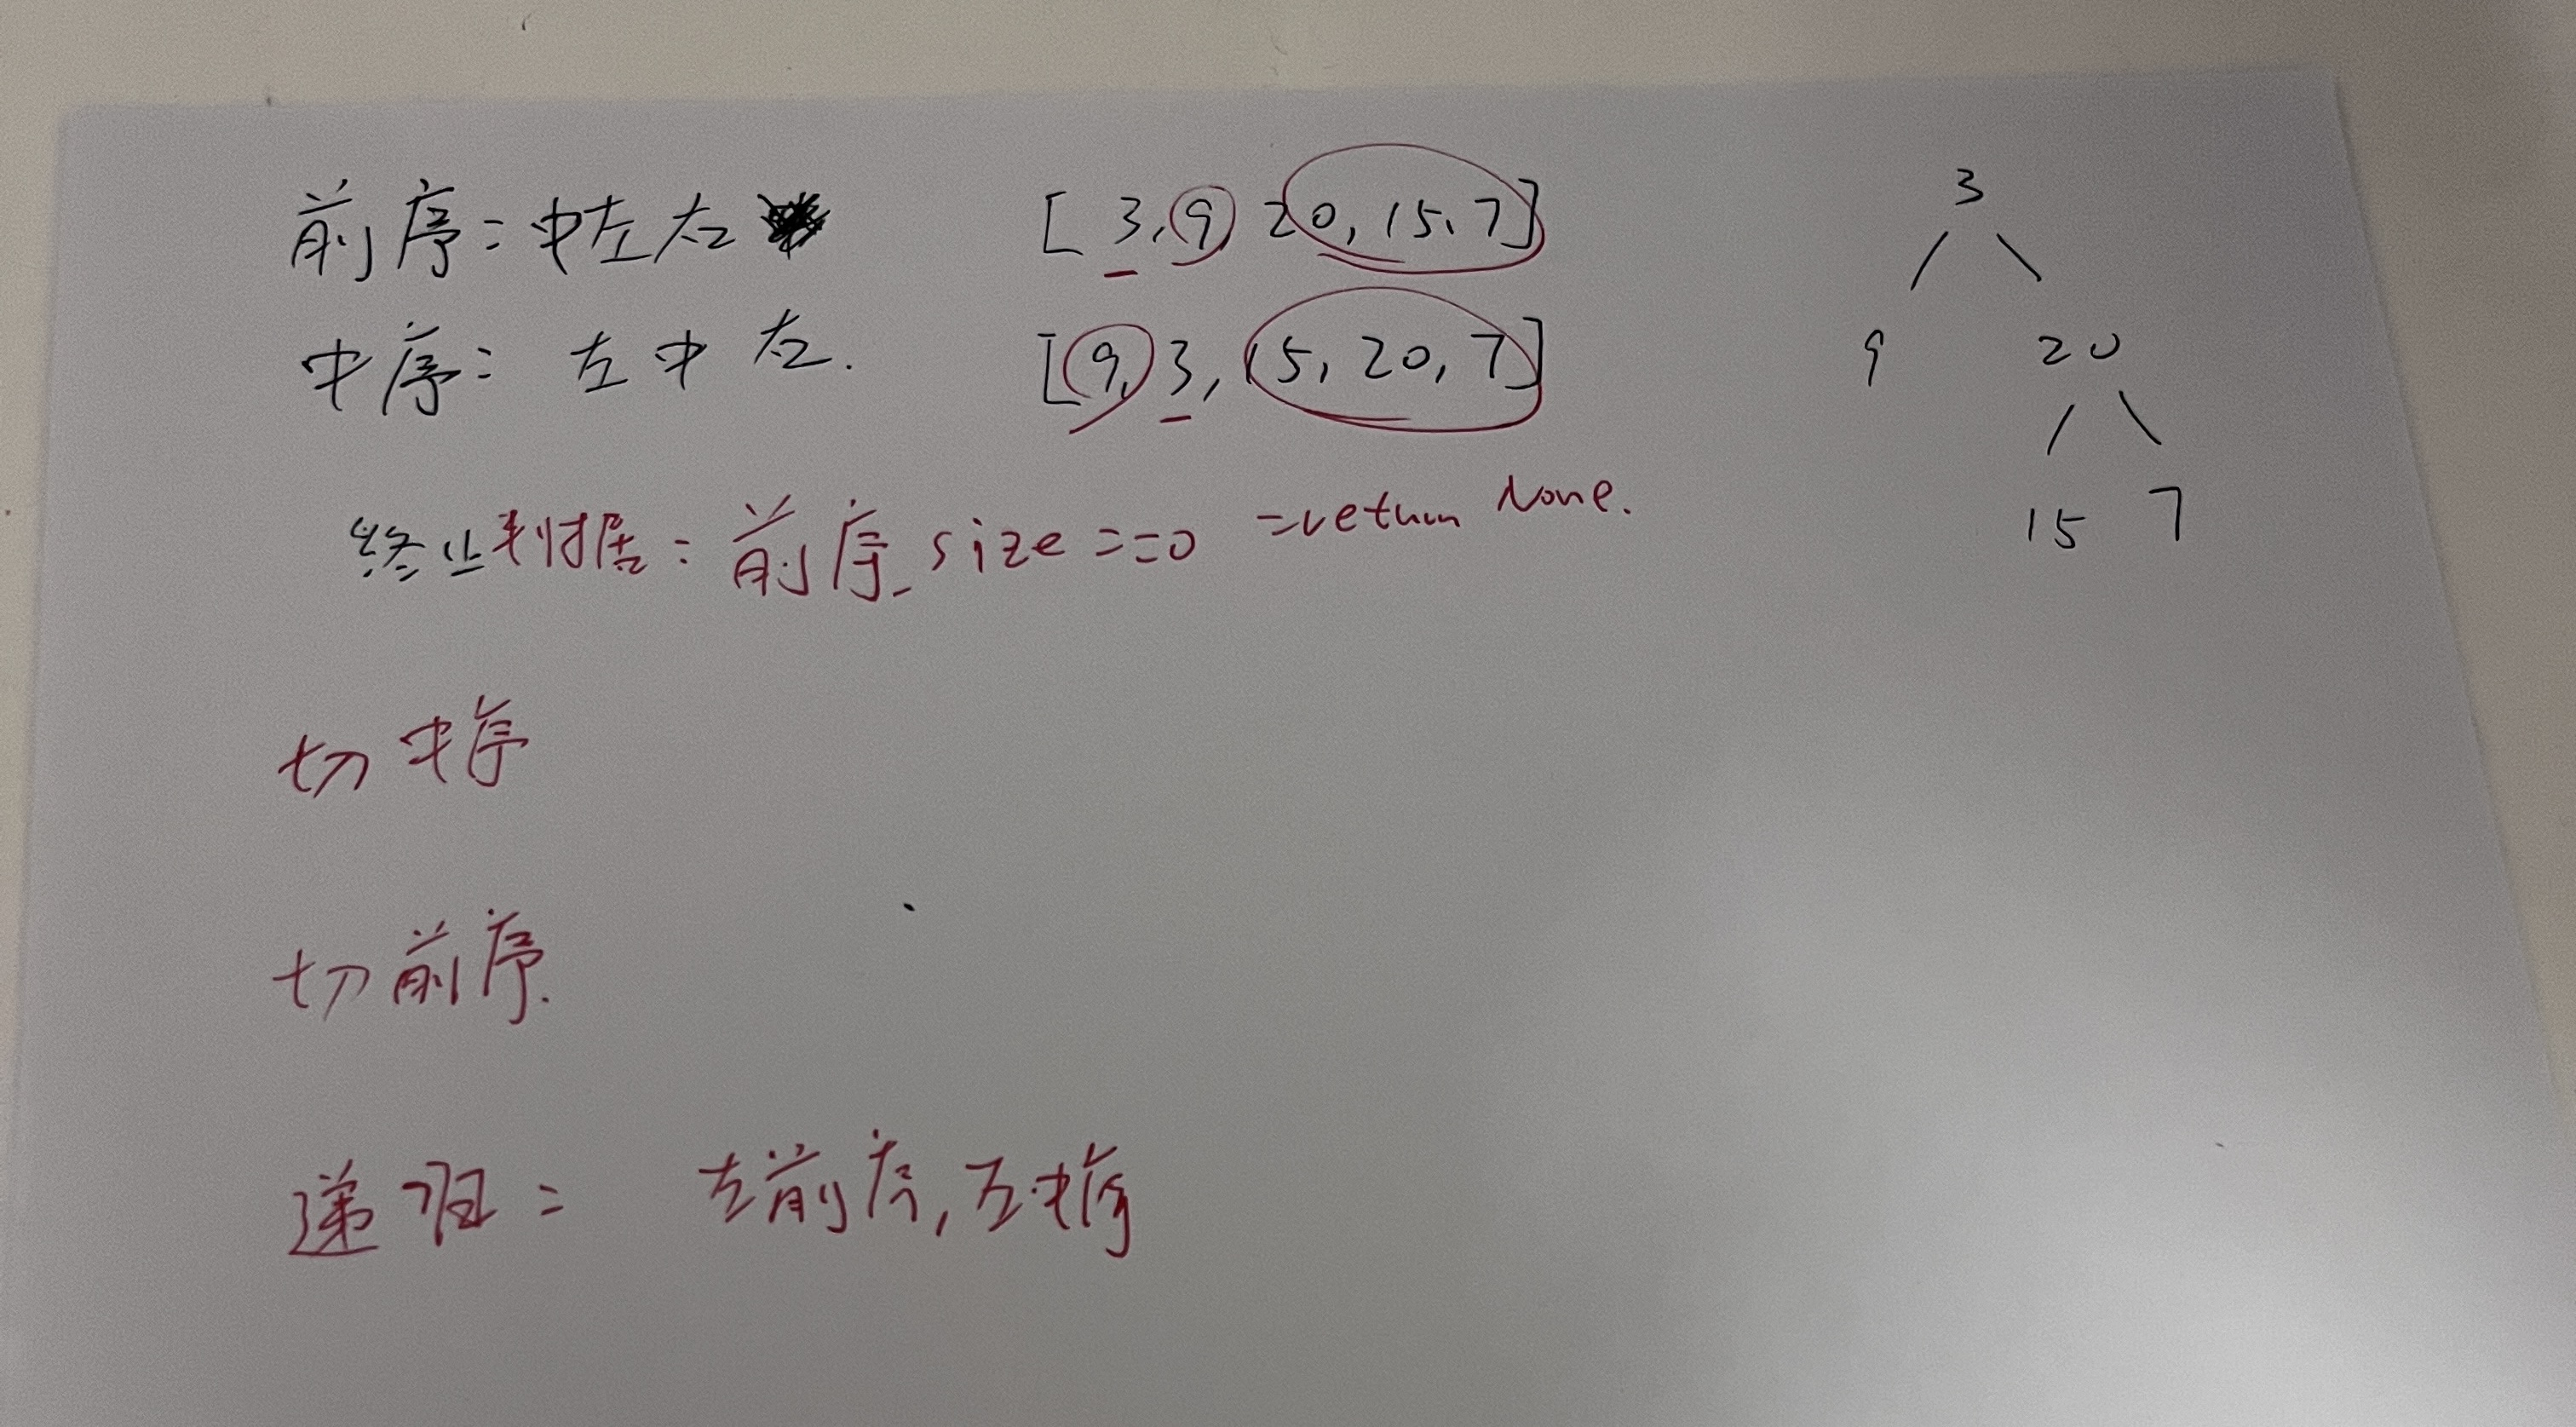 前序：中左右 [3,9,20,15,7]
中序：左中右. [9,3,15,20,7]
3
9 20
15 7
终止判断：前序_size==0 =return None.
切中序
切前序.
递归= 左前序,左中序